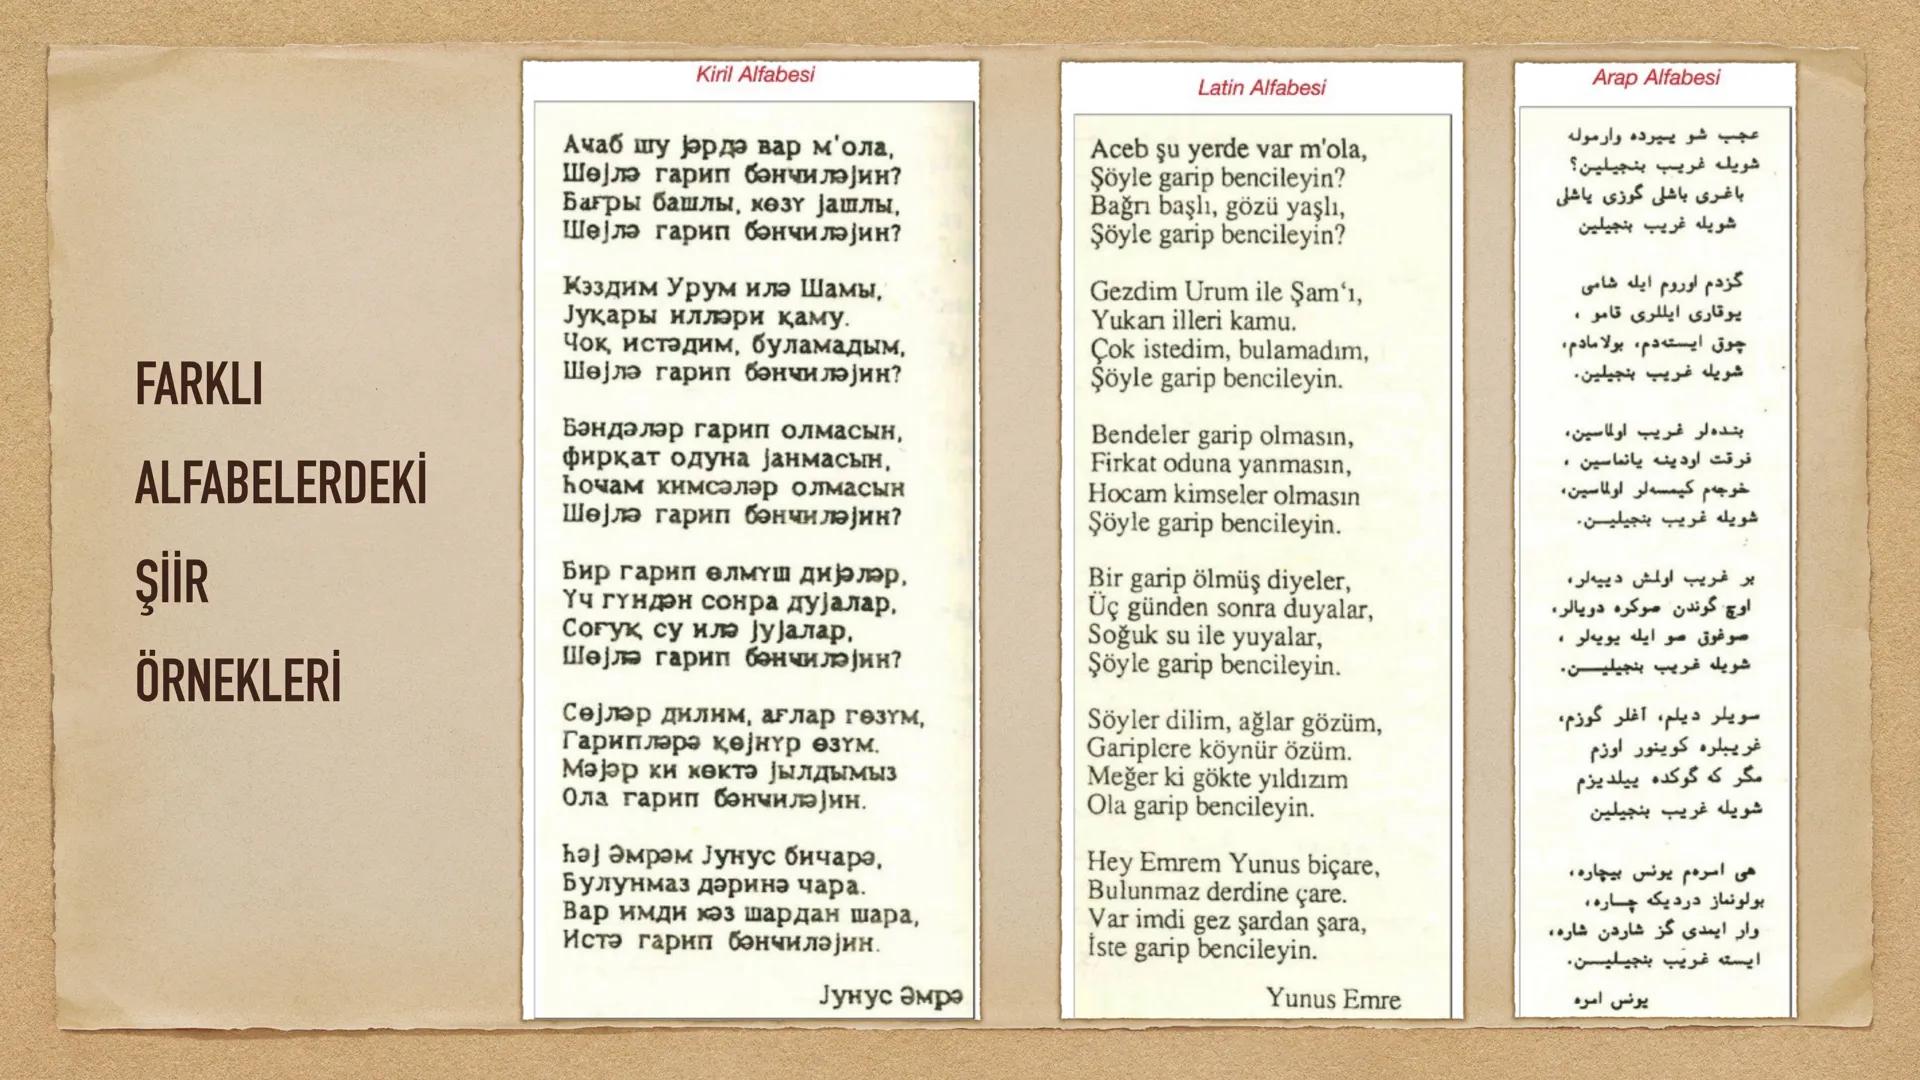 FARKLI
ALFABELERDEKİ
ŞİİR
ÖRNEKLERİ
Kiril Alfabesi
Ачаб шу јәрдә вар м'ола,
Шөјлә гарип бәнчиләјин?
Бағры башлы, көзү јашлы,
Шөјлә гарип бәнчиләјин?
Кәздим Урум илә Шамы,
Јуқары илләри қаму.
Чоқ истәдим, буламадым,
Шөјлә гарип бәнчиләјин?
Бәндәләр гарип олмасын,
фирқат одуна јанмасын,
Һочам кимсәләр олмасын
Шөјлә гарип бәнчиләјин?
Бир гарип өлмүш дијәләр,
Үч гүндән сонра дујалар,
Соғуқ су илә јујалар,
Шөјлә гарип бәнчиләјин?
Сөјләр дилим, ағлар гөзүм,
Гарипләрә қөјнүр өзүм.
Мәјәр ки көктә јылдымыз
Ола гарип бәнчиләјин.
Һәј Әмрәм Јунус бичарә,
Булунмаз дәринә чара.
Вар имди кәз шардан шара,
Истә гарип бәнчиләјин.
Јунус Әмрә
Latin Alfabesi
Aceb şu yerde var m'ola,
Şöyle garip bencileyin?
Bağrı başlı, gözü yaşlı,
Şöyle garip bencileyin?
Gezdim Urum ile Şam‘ı,
Yukarı illeri kamu.
Çok istedim, bulamadım,
Şöyle garip bencileyin.
Bendeler garip olmasın,
Firkat oduna yanmasın,
Hocam kimseler olmasın
Şöyle garip bencileyin.
Bir garip ölmüş diyeler,
Üç günden sonra duyalar,
Soğuk su ile yuyalar,
Şöyle garip bencileyin.
Söyler dilim, ağlar gözüm,
Gariplere köynür özüm.
Meğer ki gökte yıldızım
Ola garip bencileyin.
Hey Emrem Yunus biçare,
Bulunmaz derdine çare.
Var imdi gez şardan şara,
İste garip bencileyin.
Yunus Emre
Arap Alfabesi
عجب شو ییرده وارموله
شویله غریب بنجیلین؟
باغری باشلی گوزی یاشلی
شویله غریب بنجیلین
گزدم اوروم ایله شامی
یوقاری ایللری قامو ،
چوق ایسته‌دم، بولامادم،
شویله غریب بنجیلین.
بنده‌لر غریب اولماسین،
فرقت اودینه یانماسین ،
خوجه‌م کیمسه‌لر اولماسین،
شویله غریب بنجیلیـن.
بر غریب اولمش دییه‌لر،
اوچ گوندن صوکره دویالر،
صوغوق صو ایله یویه‌لر ،
شویله غریب بنجیلیــن.
سویلر دیلم، آغلر گوزم،
غریبلره کوینور اوزم
مگر که گوکده ییلدیزم
شویله غریب بنجیلین
هی امره‌م یونس بیچاره،
بولونماز دردیکه چــاره،
وار ایمدی گز شاردن شاره،
ایسته غریب بنجیلیــن.
یونس امره